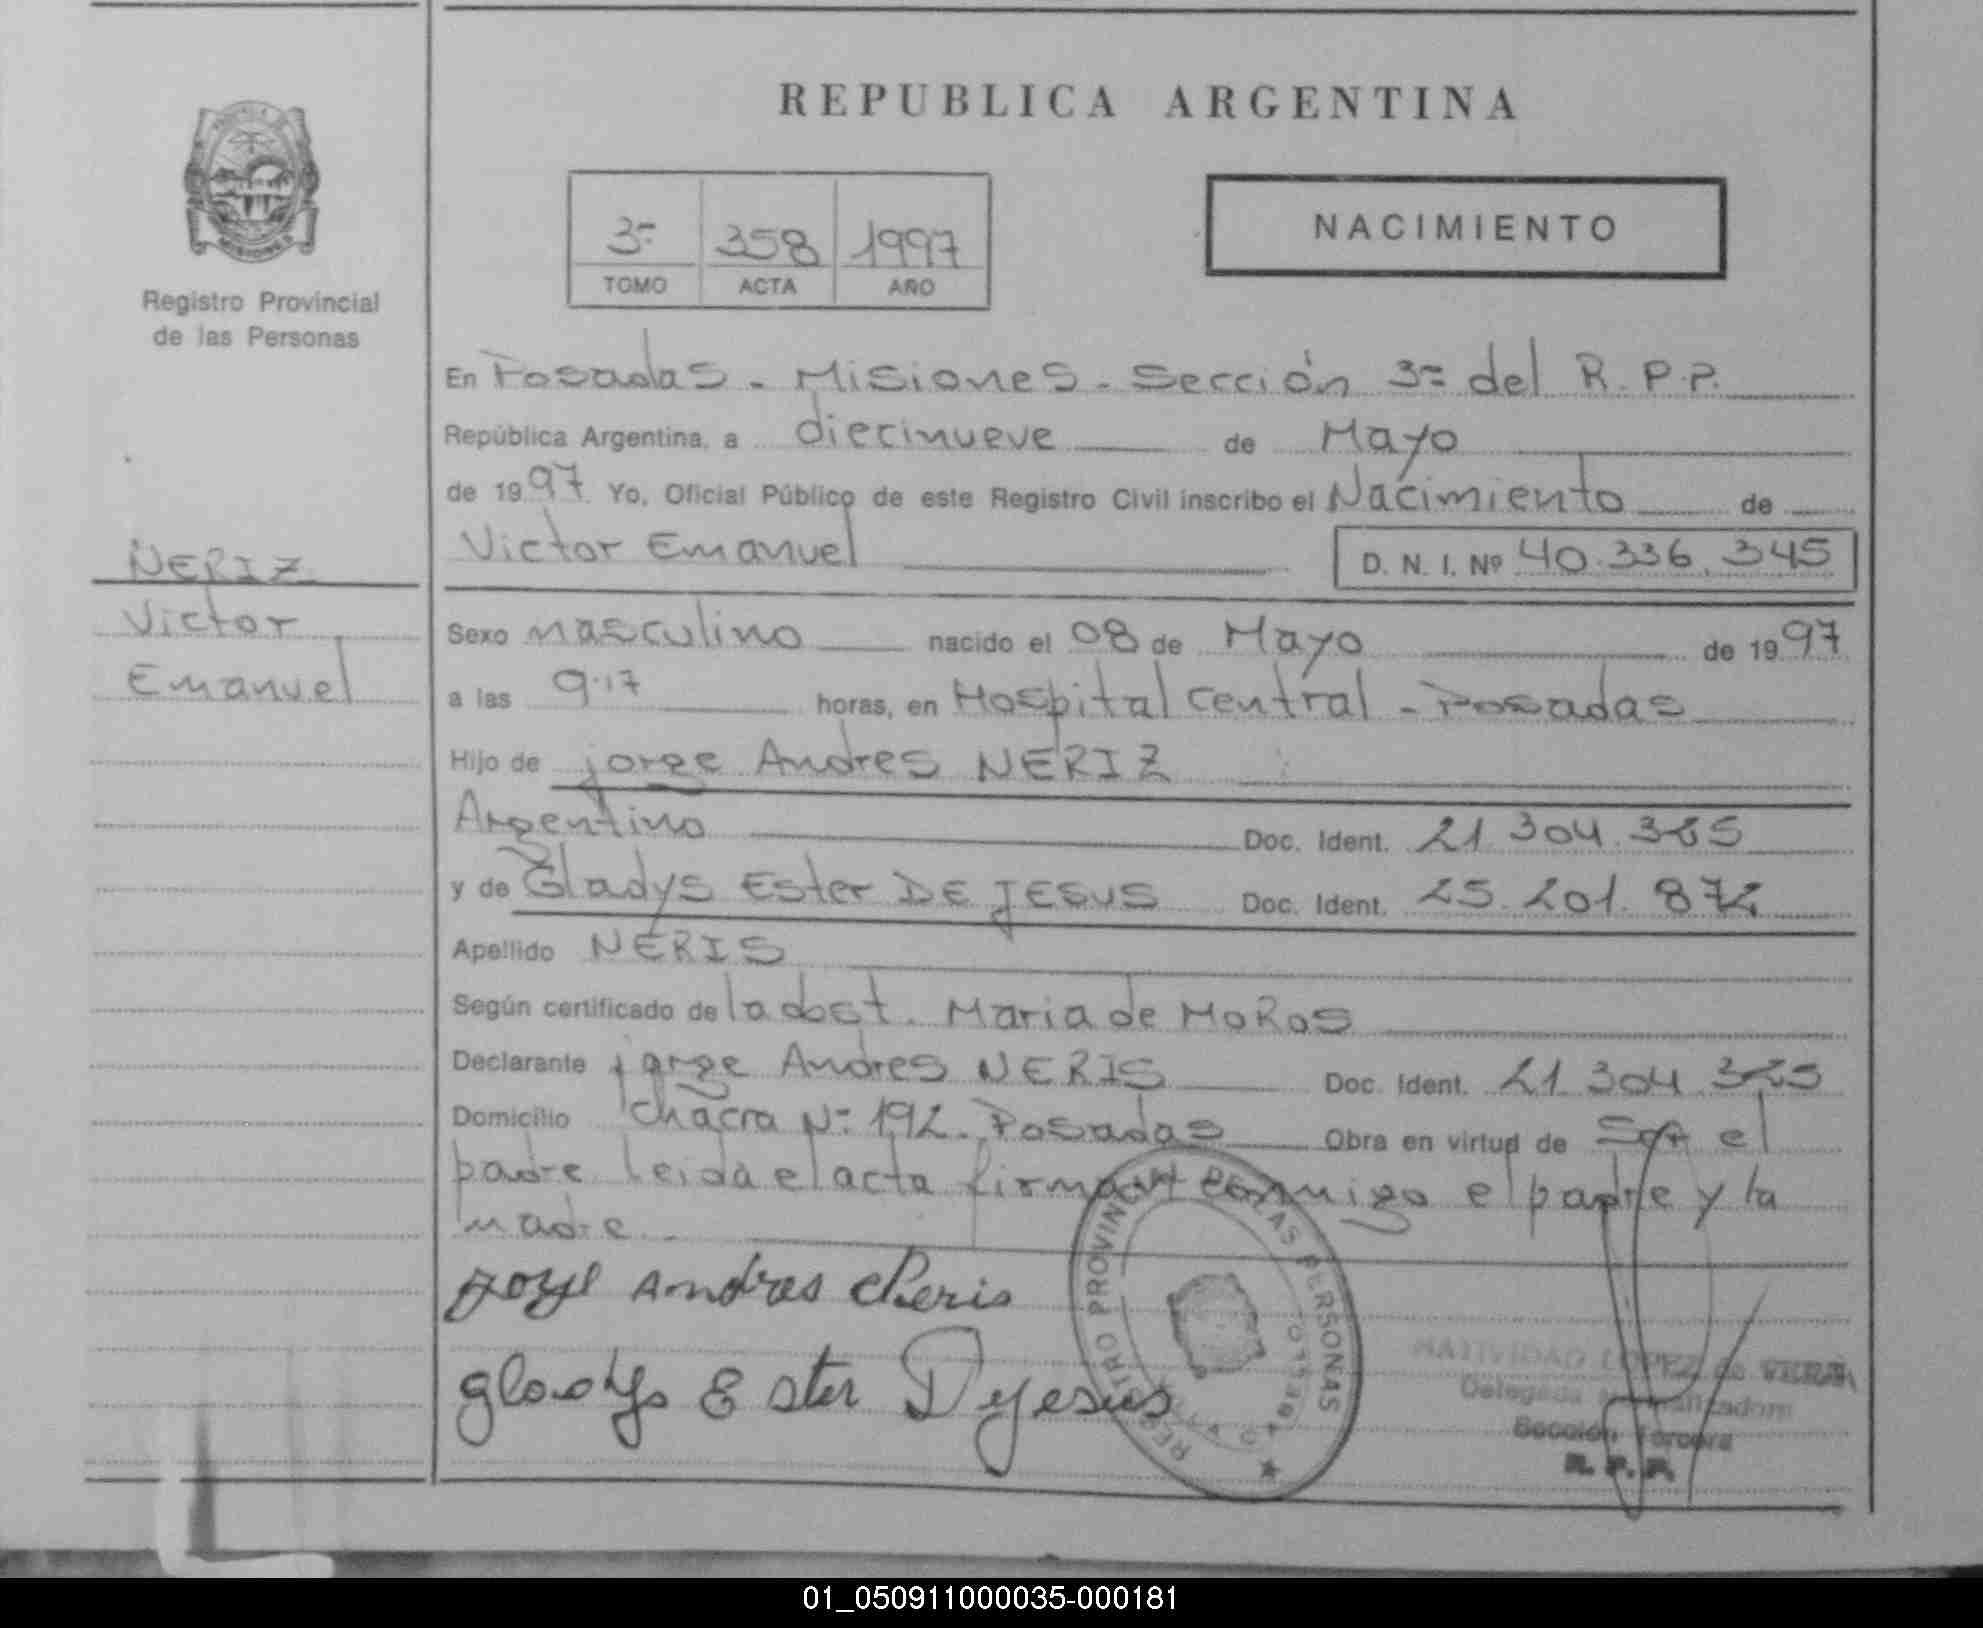 REPUBLICA ARGENTINA
Registro Provincial
de las Personas
3ª 358 1997
TOMO ACTA AÑO
NACIMIENTO
NERIZ
Victor
Emanuel
En Posadas - Misiones - Sección 3ª del R.P.P.
República Argentina, a diecinueve de Mayo
de 1997 Yo, Oficial Público de este Registro Civil inscribo el Nacimiento de
Victor Emanuel D. N. I. Nº 40.336.345
Sexo masculino nacido el 08 de Mayo de 1997
a las 9.17 horas, en Hospital central - Posadas
Hijo de jorge Andres NERIZ
Argentino Doc. Ident. 21.304.325
y de Gladys Ester DE JESUS Doc. Ident. 25.201.872
Apellido NERIS
Según certificado de la obst. Maria de MoRos
Declarante jorge Andres NERIS Doc. Ident. 21.304.325
Domicilio Chacra Nº 192. Posadas Obra en virtud de ser el
padre leida el acta firman conmigo el padre y la
madre
Andres Neris
gladys Ester D yesus
REGISTRO PROVINCIAL DE LAS PERSONAS
NATIVIDAD LOPEZ de VERA
Delegada
Sección Tercera
R. P. P.
01_050911000035-000181